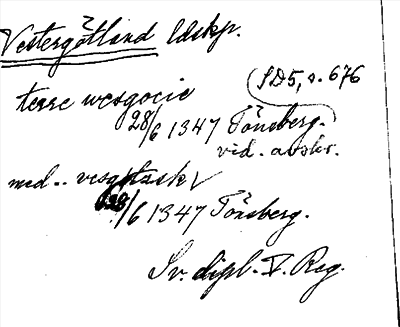 Vestergötland ldskp.
SD5, s. 676
terre wesgocie
28/6 1347 Tönsberg.
vid. avskr.
med..vesgötzsk
28/6 1347 Tönsberg.
Sv. dipl. V. Reg.